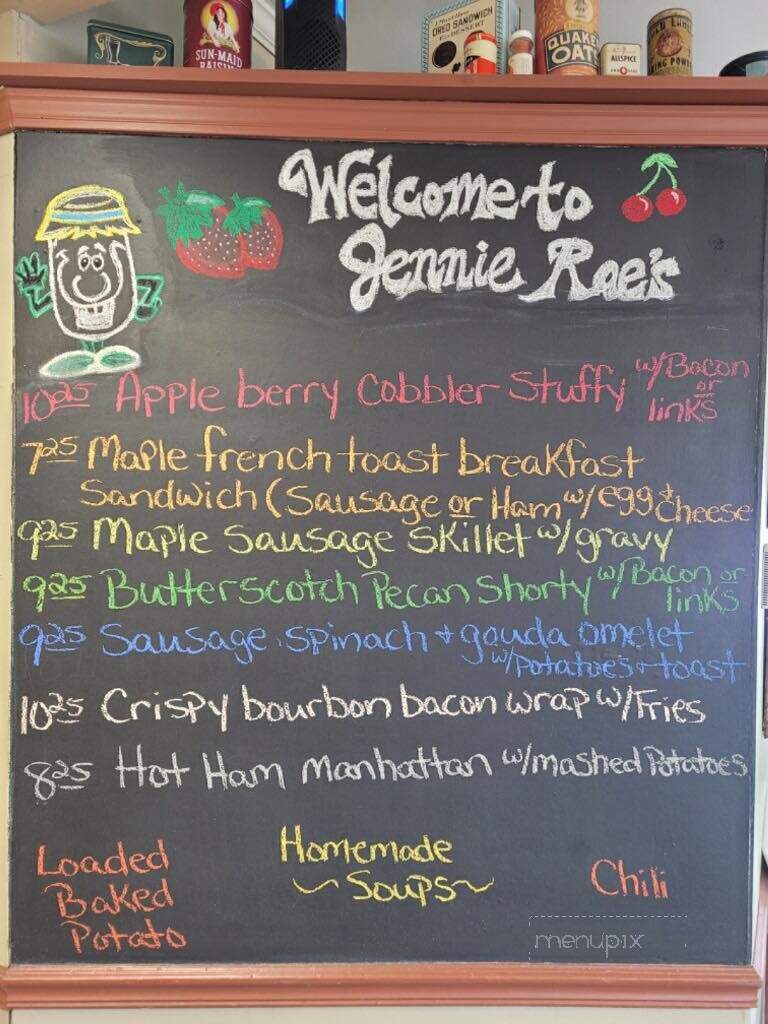 SUN-MAID
RAISINS
OREO SANDWICH
FOR DESSERT
QUAKER
OATS
ALLSPICE
Welcome to
Jennie Rae's
10.25 Apple berry Cobbler Stuffy w/Bacon
or
links
7.25 Maple french toast breakfast
Sandwich (Sausage or Ham w/egg & cheese
9.25 Maple Sausage Skillet w/gravy
9.25 Butterscotch Pecan Shorty w/Bacon or
links
9.25 Sausage, spinach + gouda omelet
w/potatoes + toast
10.25 Crispy bourbon bacon wrap w/Fries
8.25 Hot Ham Manhattan w/mashed Potatoes
Loaded
Baked
Potato
Homemade
~Soups~
Chili
menupix